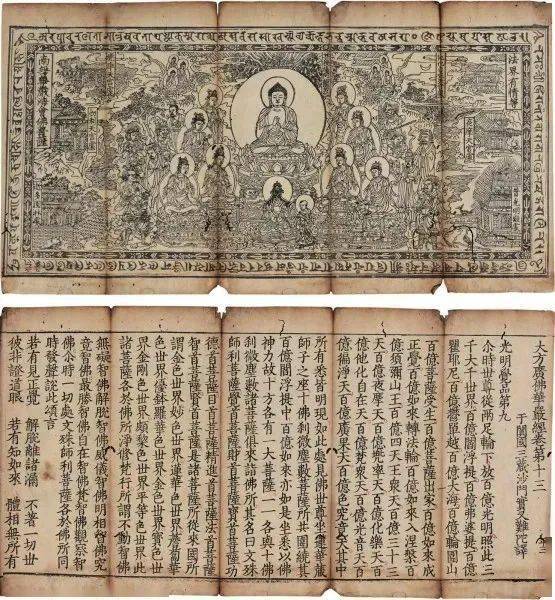 南无華嚴海會佛菩薩
大方廣佛華嚴經卷第十三
于闐國三藏沙門實叉難陀譯
光明覺品第九
尒時世尊從兩足輪下放百億光明照此三
千大千世界百億閻浮提百億弗婆提百億
瞿耶尼百億鬱單越百億大海百億輪圍山
百億菩薩受生百億菩薩出家百億如來成
正覺百億如來轉法輪百億如來入涅槃百
億須彌山王百億四天王衆天百億三十三
天百億夜摩天百億兜率天百億化樂天百
億他化自在天百億梵衆天百億光音天百
億徧淨天百億廣果天百億色究竟天其中
所有悉皆明現如此處見佛世尊坐蓮華藏
師子之座十佛刹微塵數菩薩所共圍繞其
百億閻浮提中百億如來亦如是坐悉以佛
神力故十方各有一大菩薩一一各與十佛
刹微塵數諸菩薩俱來詣佛所其名曰文殊
師利菩薩覺首菩薩財首菩薩寶首菩薩功
德首菩薩目首菩薩精進首菩薩法首菩薩
智首菩薩賢首菩薩是諸菩薩所從來國所
謂金色世界妙色世界蓮華色世界薝蔔華
色世界優鉢羅華色世界金色世界寶色世
界金剛色世界頗黎色世界平等色世界此
諸菩薩各於佛所淨修梵行所謂不動智佛
無礙智佛解脫智佛威儀智佛明相智佛究
竟智佛最勝智佛自在智佛梵智佛觀察智
佛尒時一切處文殊師利菩薩各於佛所同
時發聲說此頌言
若有見正覺 解脫離諸漏 不著一切世
彼非證道眼 若有知如來 體相無所有